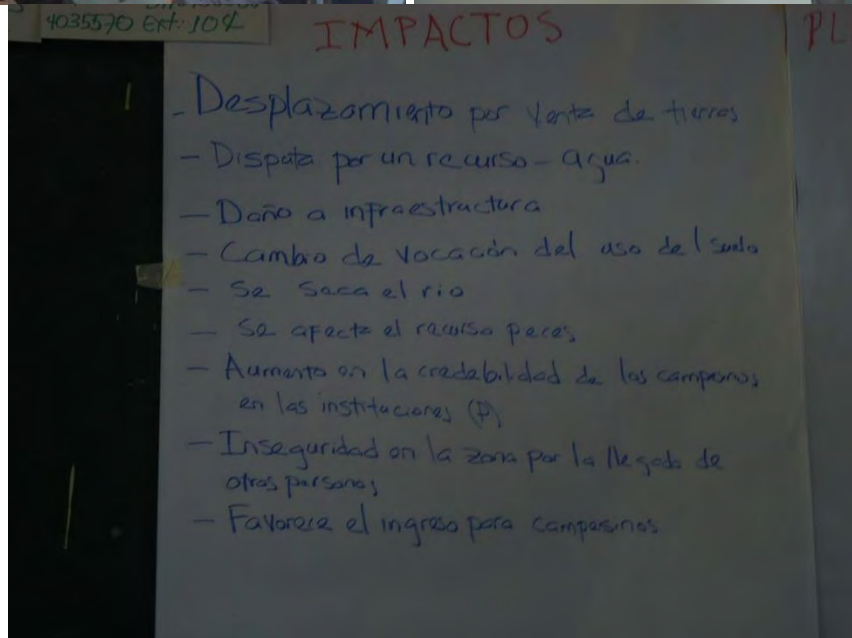 4035570 Ext: 104
IMPACTOS
PL
- Desplazamiento por Venta de tierras
- Disputa por un recurso - agua.
- Daño a infraestructura
- Cambio de vocación del uso del suelo
- Se Seca el rio
- Se afecta el recurso peces
- Aumento en la credebilidad de los campesinos
en las instituciones (P)
- Inseguridad en la zona por la llegada de
otras personas
- Favorece el ingreso para campesinos